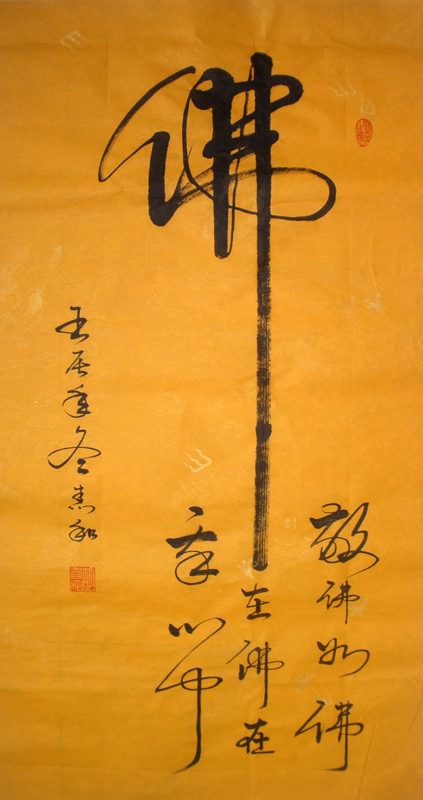 佛
敬佛如佛
在佛在
心中
壬辰年冬